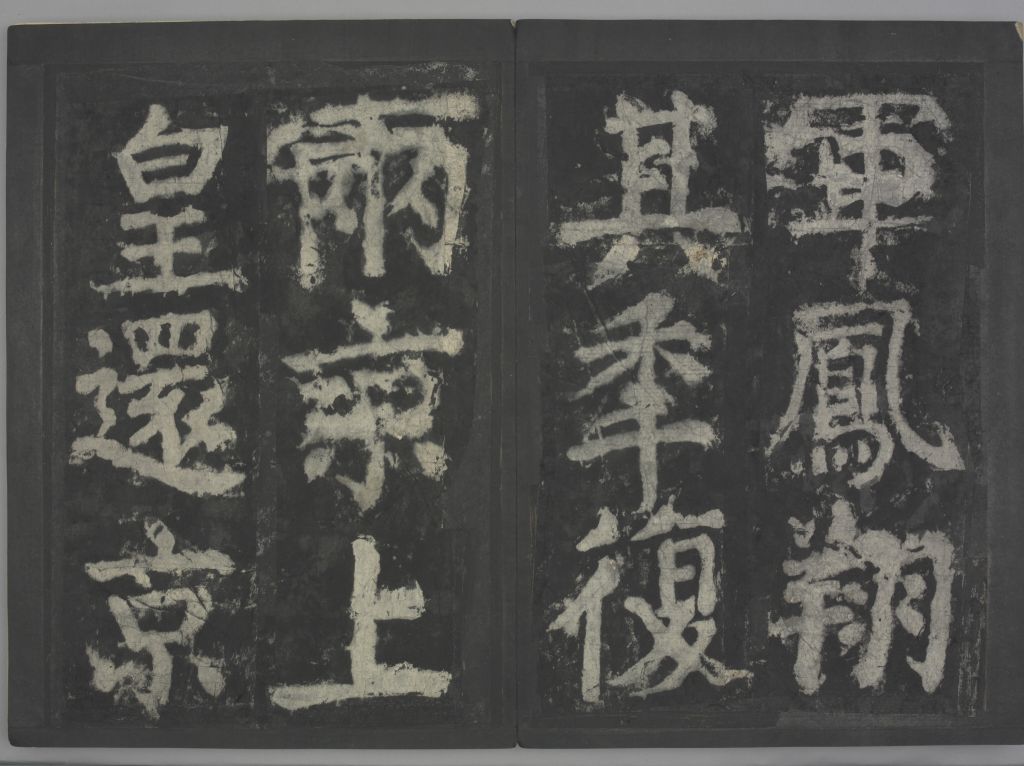 軍鳳翔
其年復
兩京上
皇還京